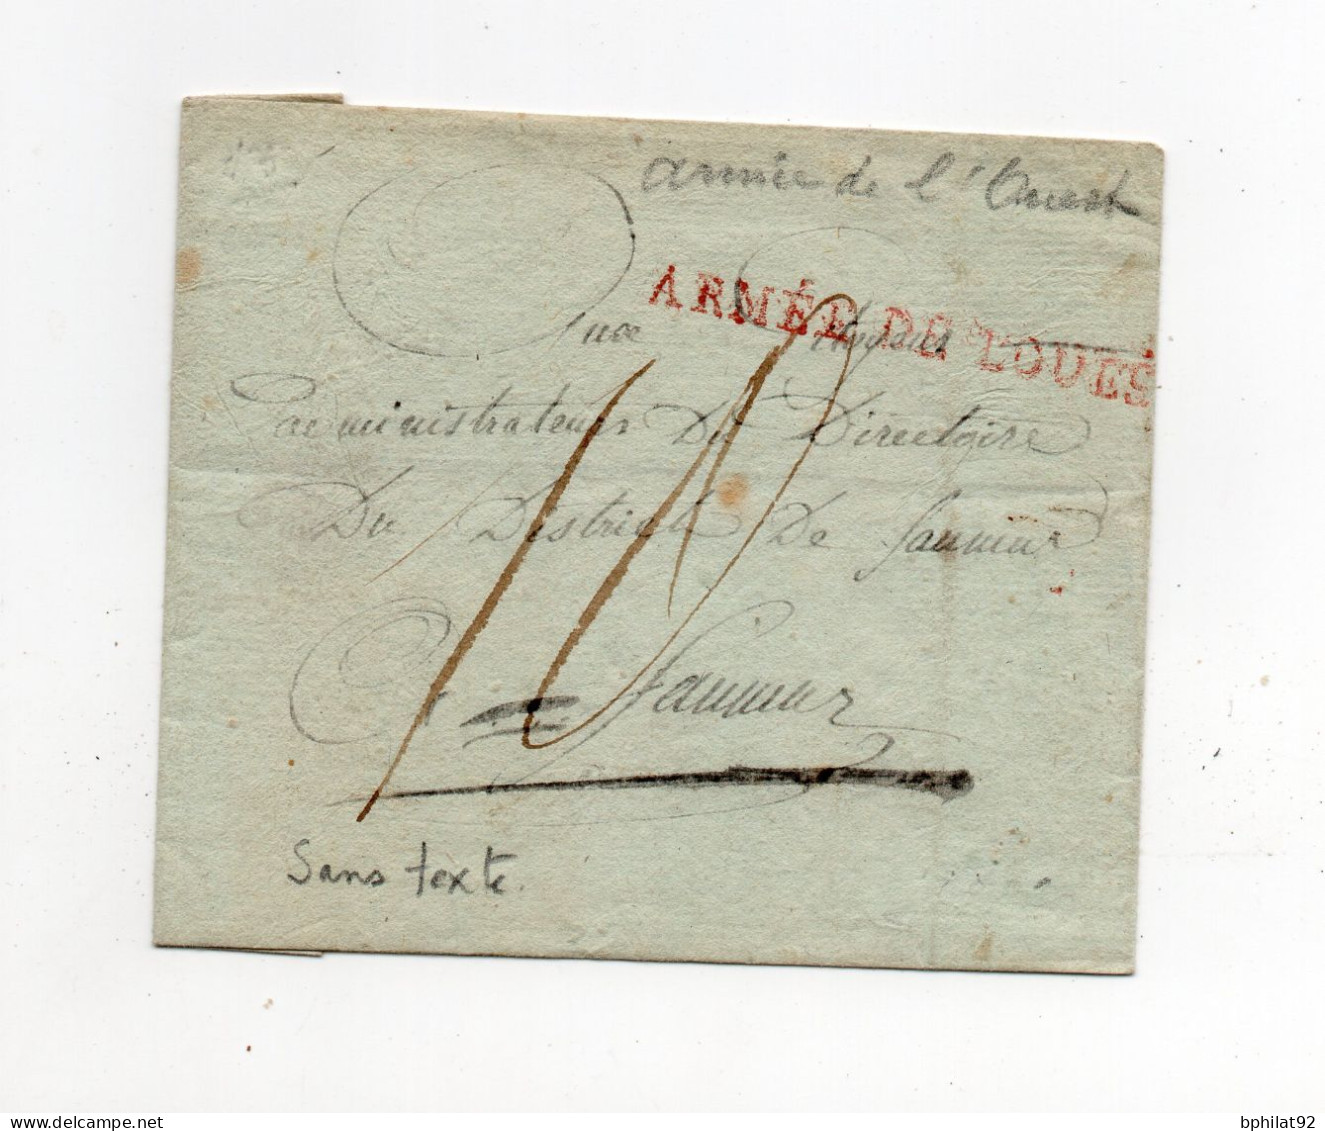 armée de l'Ouest
ARMÉE DE L'OUES
Aux Citoyens
administrateurs Du Directoire
Du District De Saumur
10
a Saumur
Sans texte.
www.delcampe.net
bphilat92